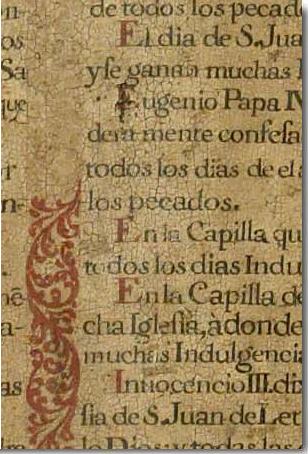 n-
os
Sa
que
r
n-
a.
nē-
a-
as
ra
de todos los pecad
El dia de S. Jua
y se ganan muchas
Eugenio Papa IV
dera mente confesa
todos los dias de el a
los pecados.
En la Capilla qu
todos los dias Indul
En la Capilla de
cha Iglesia, à donde
muchas Indulgencia
Innocencio III. di
sia de S. Juan de Let
de Dios: y todas las